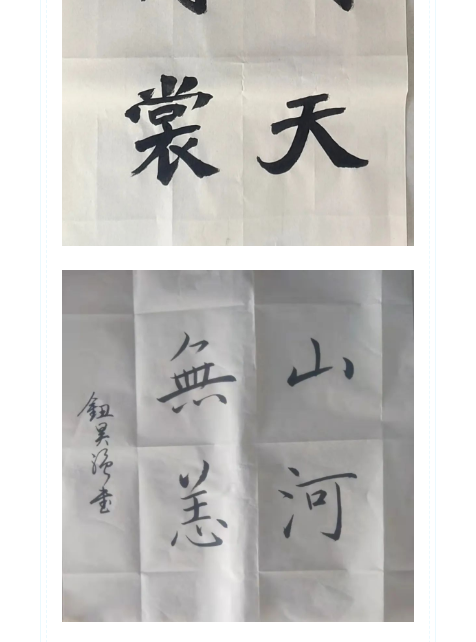 天
裳
山河
無恙
鈕昊書